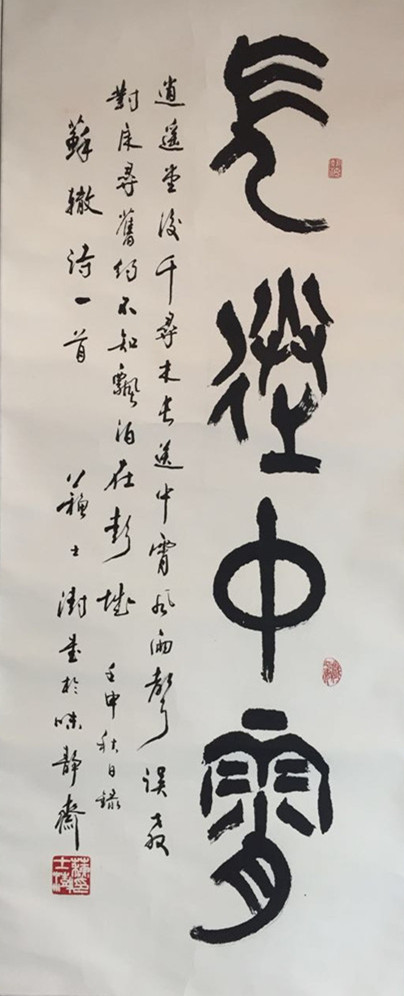 長送中宵
逍遥堂後千尋木長送中宵風雨聲誤喜
對床尋舊約不知飄泊在彭城 壬申秋日錄
蘇轍詩一首 蘇士澍書於味靜齋